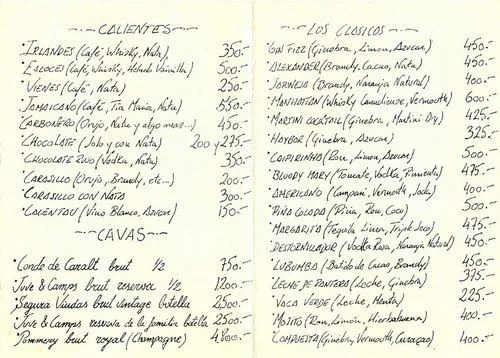 CALIENTES
IRLANDES (Café, Whisky, Nata) 350.-
ESCOCES (Café, Whisky, Helado Vainilla) 500.-
VIENES (Café, Nata) 250.-
JAMAICANO (Café, Tia Maria, Nata) 550.-
CARBONERO (Orujo, Nata y algo mas...) 450.-
CHOCOLATE (Solo y con Nata) 200 y 275.-
CHOCOLATE RUSO (Vodka, Nata) 350.-
CARAJILLO (Orujo, Brandy, etc...) 200.-
CARAJILLO CON NATA 300.-
CALENTOU (Vino Blanco, Azucar) 150.-
CAVAS
Conde de Caralt brut 1/2 750.-
Juve & Camps brut reserva 1/2 1200.-
Segura Viudas brut vintage botella 2500.-
Juve & Camps reserva de la familia botella 2500.-
Pommery brut royal (Champagne) 4.800.-
LOS CLASICOS
GIN FIZZ (Ginebra, Limon, Azucar) 450.-
ALEXANDER (Brandy, Cacao, Nata) 450.-
(Brandy, Naranja Natural) 400.-
MANHATTAN (Whisky Canadiense, Vermouth) 600.-
MARTINI COCKTAIL (Ginebra, Martini Dry) 425.-
(Ginebra, Azucar) 325.-
CAIPIRINHA (Ron, Limon, Azucar) 500.-
BLOODY MARY (Tomate, Vodka, Pimienta) 475.-
AMERICANO (Campari, Vermouth, Soda) 400.-
PIÑA COLADA (Piña, Ron, Coco) 500.-
MARGARITA (Tequila, Limon, Triple Seco) 475.-
DESTORNILLADOR (Vodka Rusa, Naranja Natural) 450.-
LUBUMBA (Batido de Cacao, Brandy) 450.-
LECHE DE PANTERA (Leche, Ginebra) 375.-
VACA VERDE (Leche, Menta) 225.-
MOJITO (Ron, Limon, Hierbabuena) 400.-
COMPUESTA (Ginebra, Vermouth, Curaçao) 400.-